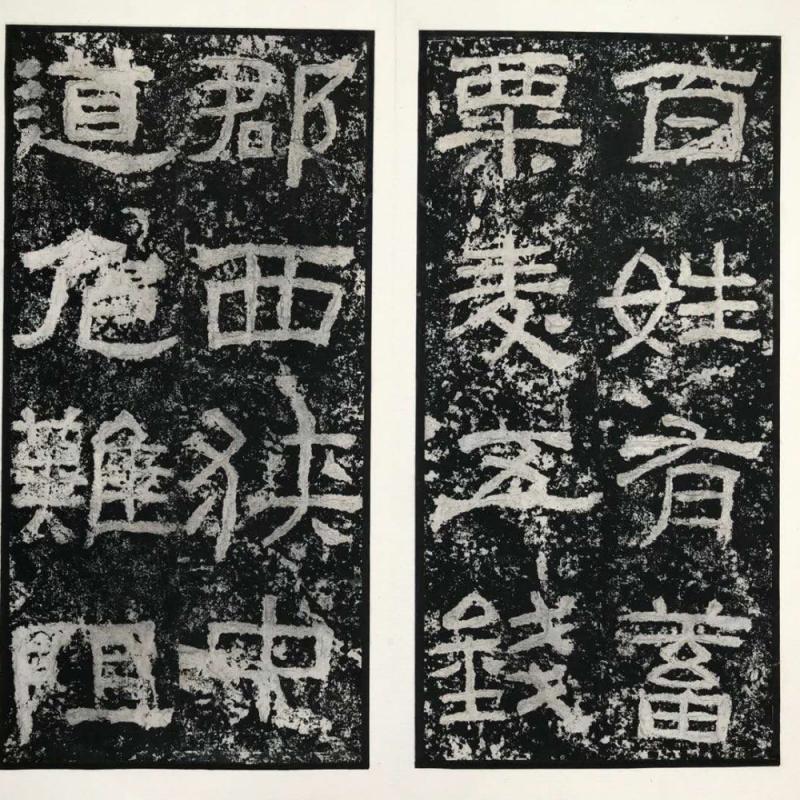 百姓有蓄
粟麦五錢
郡西狹中
道危難阻